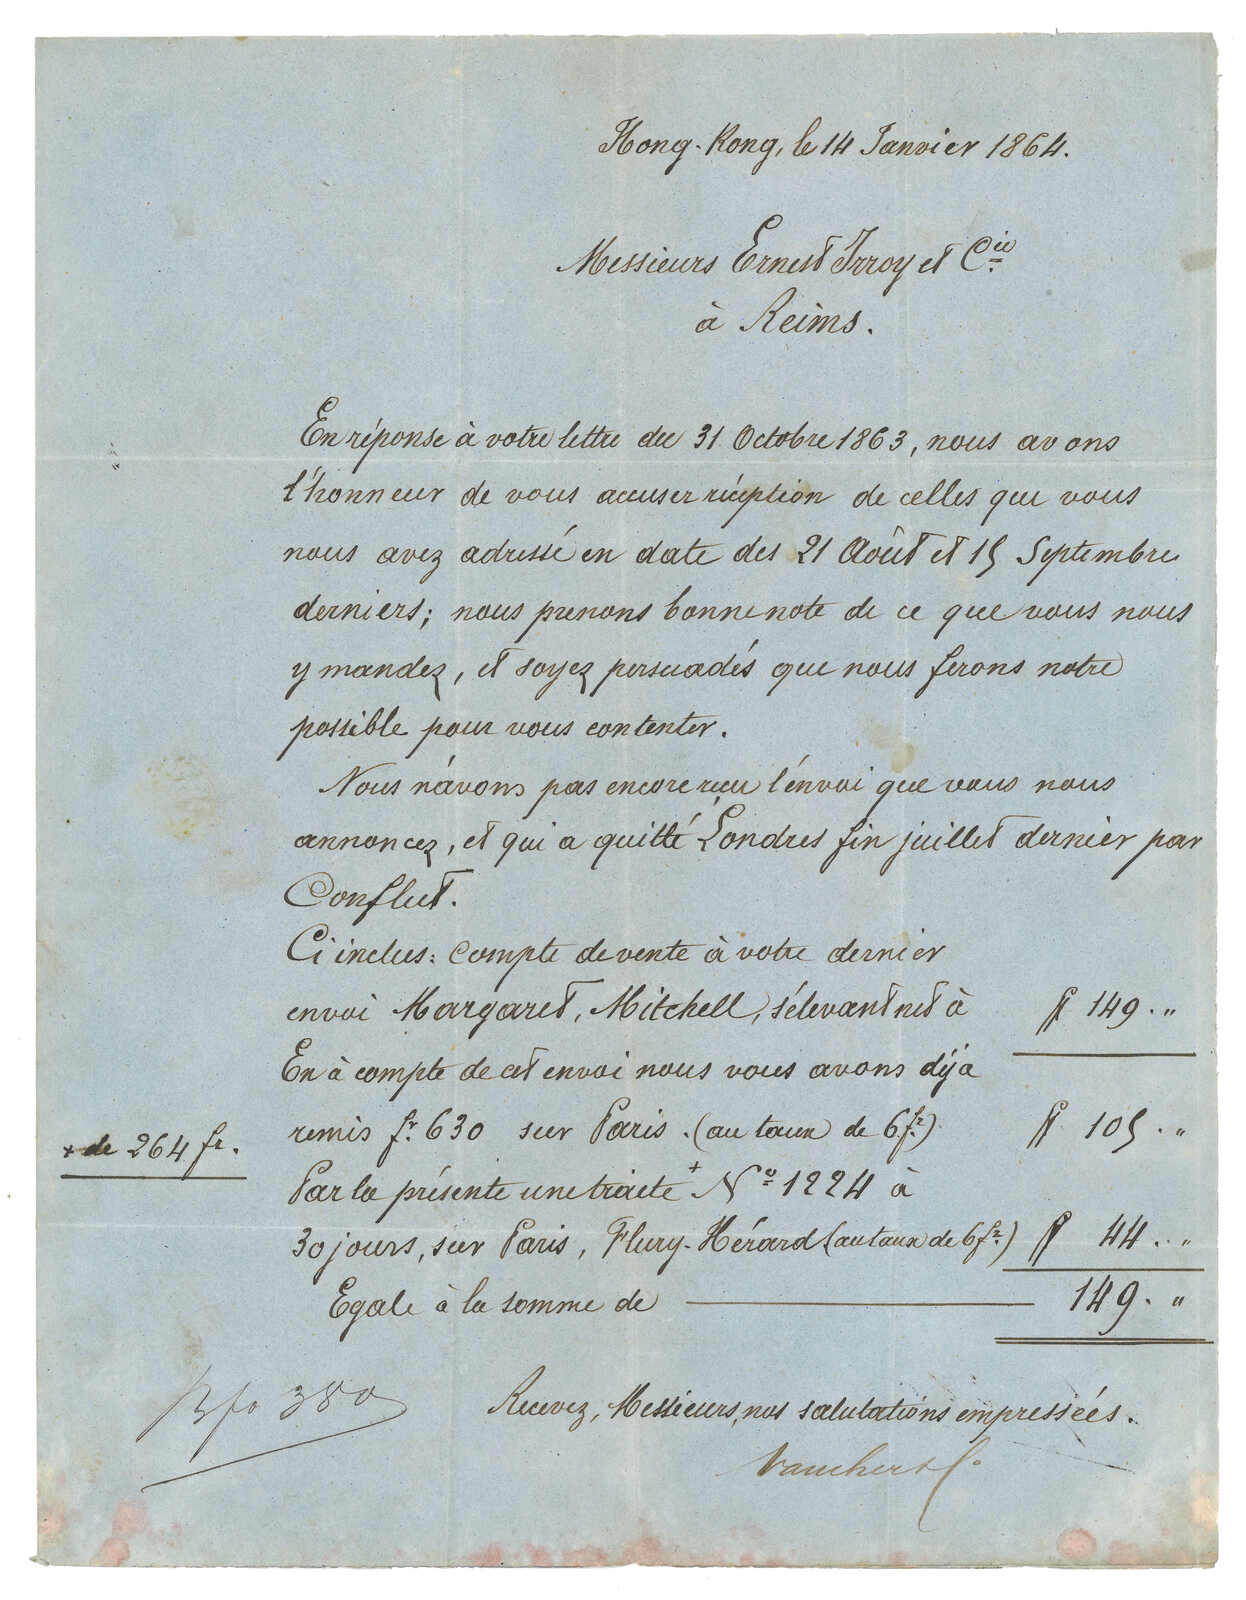 Hong-Kong, le 14 Janvier 1864.
Messieurs Ernest Irroy et Cie
à Reims.
En réponse à votre lettre du 31 Octobre 1863, nous avons
l'honneur de vous accuser réception de celles que vous
nous avez adressé en date des 21 Août et 15 Septembre
derniers; nous prenons bonne note de ce que vous nous
y mandez, et soyez persuadés que nous ferons notre
possible pour vous contenter.
Nous n'avons pas encore reçu l'envoi que vous nous
annoncez, et qui a quitté Londres fin juillet dernier par
Conflut.
Ci inclus: compte de vente à votre dernier
envoi Margaret, Mitchell, s'élevant net à $ 149."
En à compte de cet envoi nous vous avons déja
remis fr. 630 sur Paris. (au taux de 6 fr.) $ 105."
+ de 264 fr.
Par la présente une traite + No 1224 à
30 jours, sur Paris, Flury-Hérard (au taux de 6 fr.) $ 44."
Egale à la somme de 149."
Recevez, Messieurs, nos salutations empressées.
Vaucher & Co
fo 380